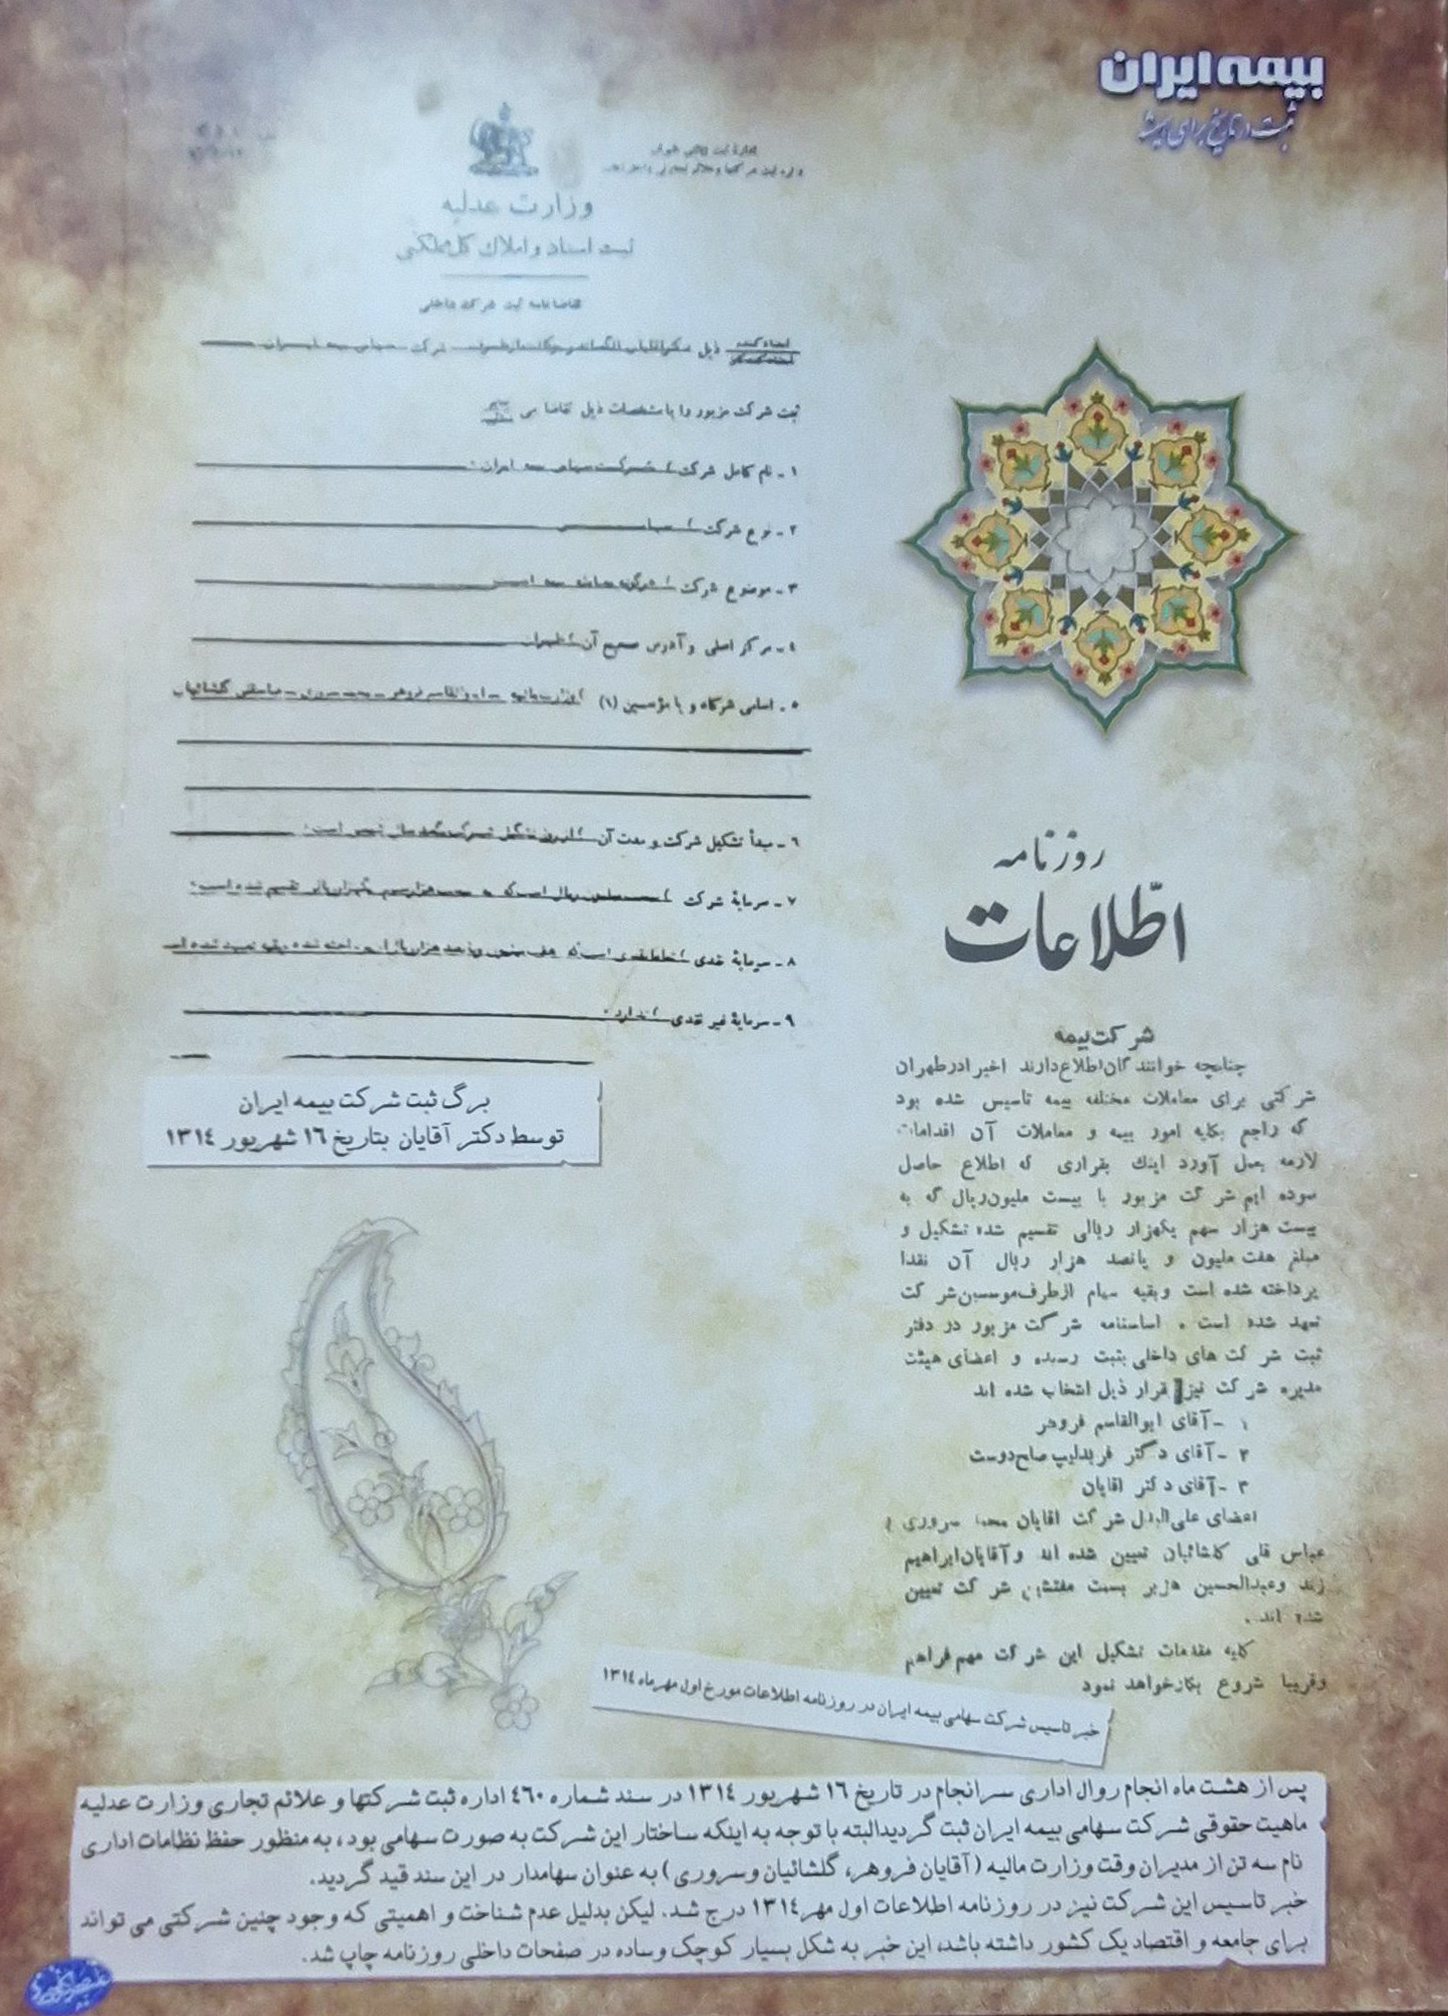 بیمه ایران
ثبت در تاریخ برای همیشه
وزارت عدلیه
ثبت اسناد و املاک کل مملکتی
تقاضا نامه ثبت شرکت داخلی
امضاء کننده
امضاء کنندگان
ذیل
شرکت سهامی بیمه ایران
ثبت شرکت مزبور را با مشخصات ذیل تقاضا می
۱ - نام کامل شرکت شرکت سهامی بیمه ایران
۲ - نوع شرکت سهامی
۳ - موضوع شرکت هرگونه معامله بیمه است
٤ - مرکز اصلی و آدرس صحیح آن طهران
۵ - اسامی شرکاء و یا مؤسسین (۱) وزارت مالیه - ابوالقاسم فروهر - محمد سروری - عباسقلی گلشائیان
٦ - مبدأ تشکیل شرکت و مدت آن از روز تشکیل شرکت
۷ - سرمایهٔ شرکت بیست ملیون ریال است که به بیست هزار سهم یکهزار ریالی تقسیم شده است
۸ - سرمایهٔ نقدی
۹ - سرمایهٔ غیر نقدی ندارد
برگ ثبت شرکت بیمه ایران
توسط دکتر آقایان بتاریخ ۱٦ شهریور ۱۳۱٤
روزنامه
اطّلاعات
شرکت بیمه
چنانچه خوانندگان اطلاع دارند اخیرا در طهران
شرکتی برای معاملات مختلفه بیمه تاسیس شده بود
که راجع بکلیه امور بیمه و معاملات آن اقدامات
لازمه بعمل آورد اینک بقراری که اطلاع حاصل
نموده ایم شرکت مزبور با بیست ملیون ریال که به
بیست هزار سهم یکهزار ریالی تقسیم شده تشکیل و
مبلغ هفت ملیون و پانصد هزار ریال آن نقدا
پرداخته شده است و بقیه سهام از طرف موسسین شرکت
تعهد شده است . اساسنامه شرکت مزبور در دفتر
ثبت شرکت های داخلی بثبت رسیده و اعضای هیئت
مدیره شرکت نیز بقرار ذیل انتخاب شده اند
۱ - آقای ابوالقاسم فروهر
۲ - آقای دکتر فریدلیپ صلح دوست
۳ - آقای دکتر اقایان
اعضای علی البدل شرکت اقایان محمد سروری و
عباس قلی گلشائیان تعیین شده اند و آقایان ابراهیم
زند و عبدالحسین هژبر بسمت مفتشین شرکت تعیین
شده اند .
کلیه مقدمات تشکیل این شرکت مهم فراهم
و قریبا شروع بکار خواهد نمود
خبر تاسیس شرکت سهامی بیمه ایران در روزنامه اطلاعات مورخ اول مهرماه ۱۳۱٤
پس از هشت ماه انجام روال اداری سرانجام در تاریخ ۱٦ شهریور ۱۳۱٤ در سند شماره ٤٦۰ اداره ثبت شرکتها و علائم تجاری وزارت عدلیه
ماهیت حقوقی شرکت سهامی بیمه ایران ثبت گردید البته با توجه به اینکه ساختار این شرکت به صورت سهامی بود، به منظور حفظ نظامات اداری
نام سه تن از مدیران وقت وزارت مالیه (آقایان فروهر، گلشائیان و سروری) به عنوان سهامدار در این سند قید گردید.
خبر تاسیس این شرکت نیز در روزنامه اطلاعات اول مهر ۱۳۱٤ درج شد. لیکن بدلیل عدم شناخت و اهمیتی که وجود چنین شرکتی می تواند
برای جامعه و اقتصاد یک کشور داشته باشد، این خبر به شکل بسیار کوچک و ساده در صفحات داخلی روزنامه چاپ شد.